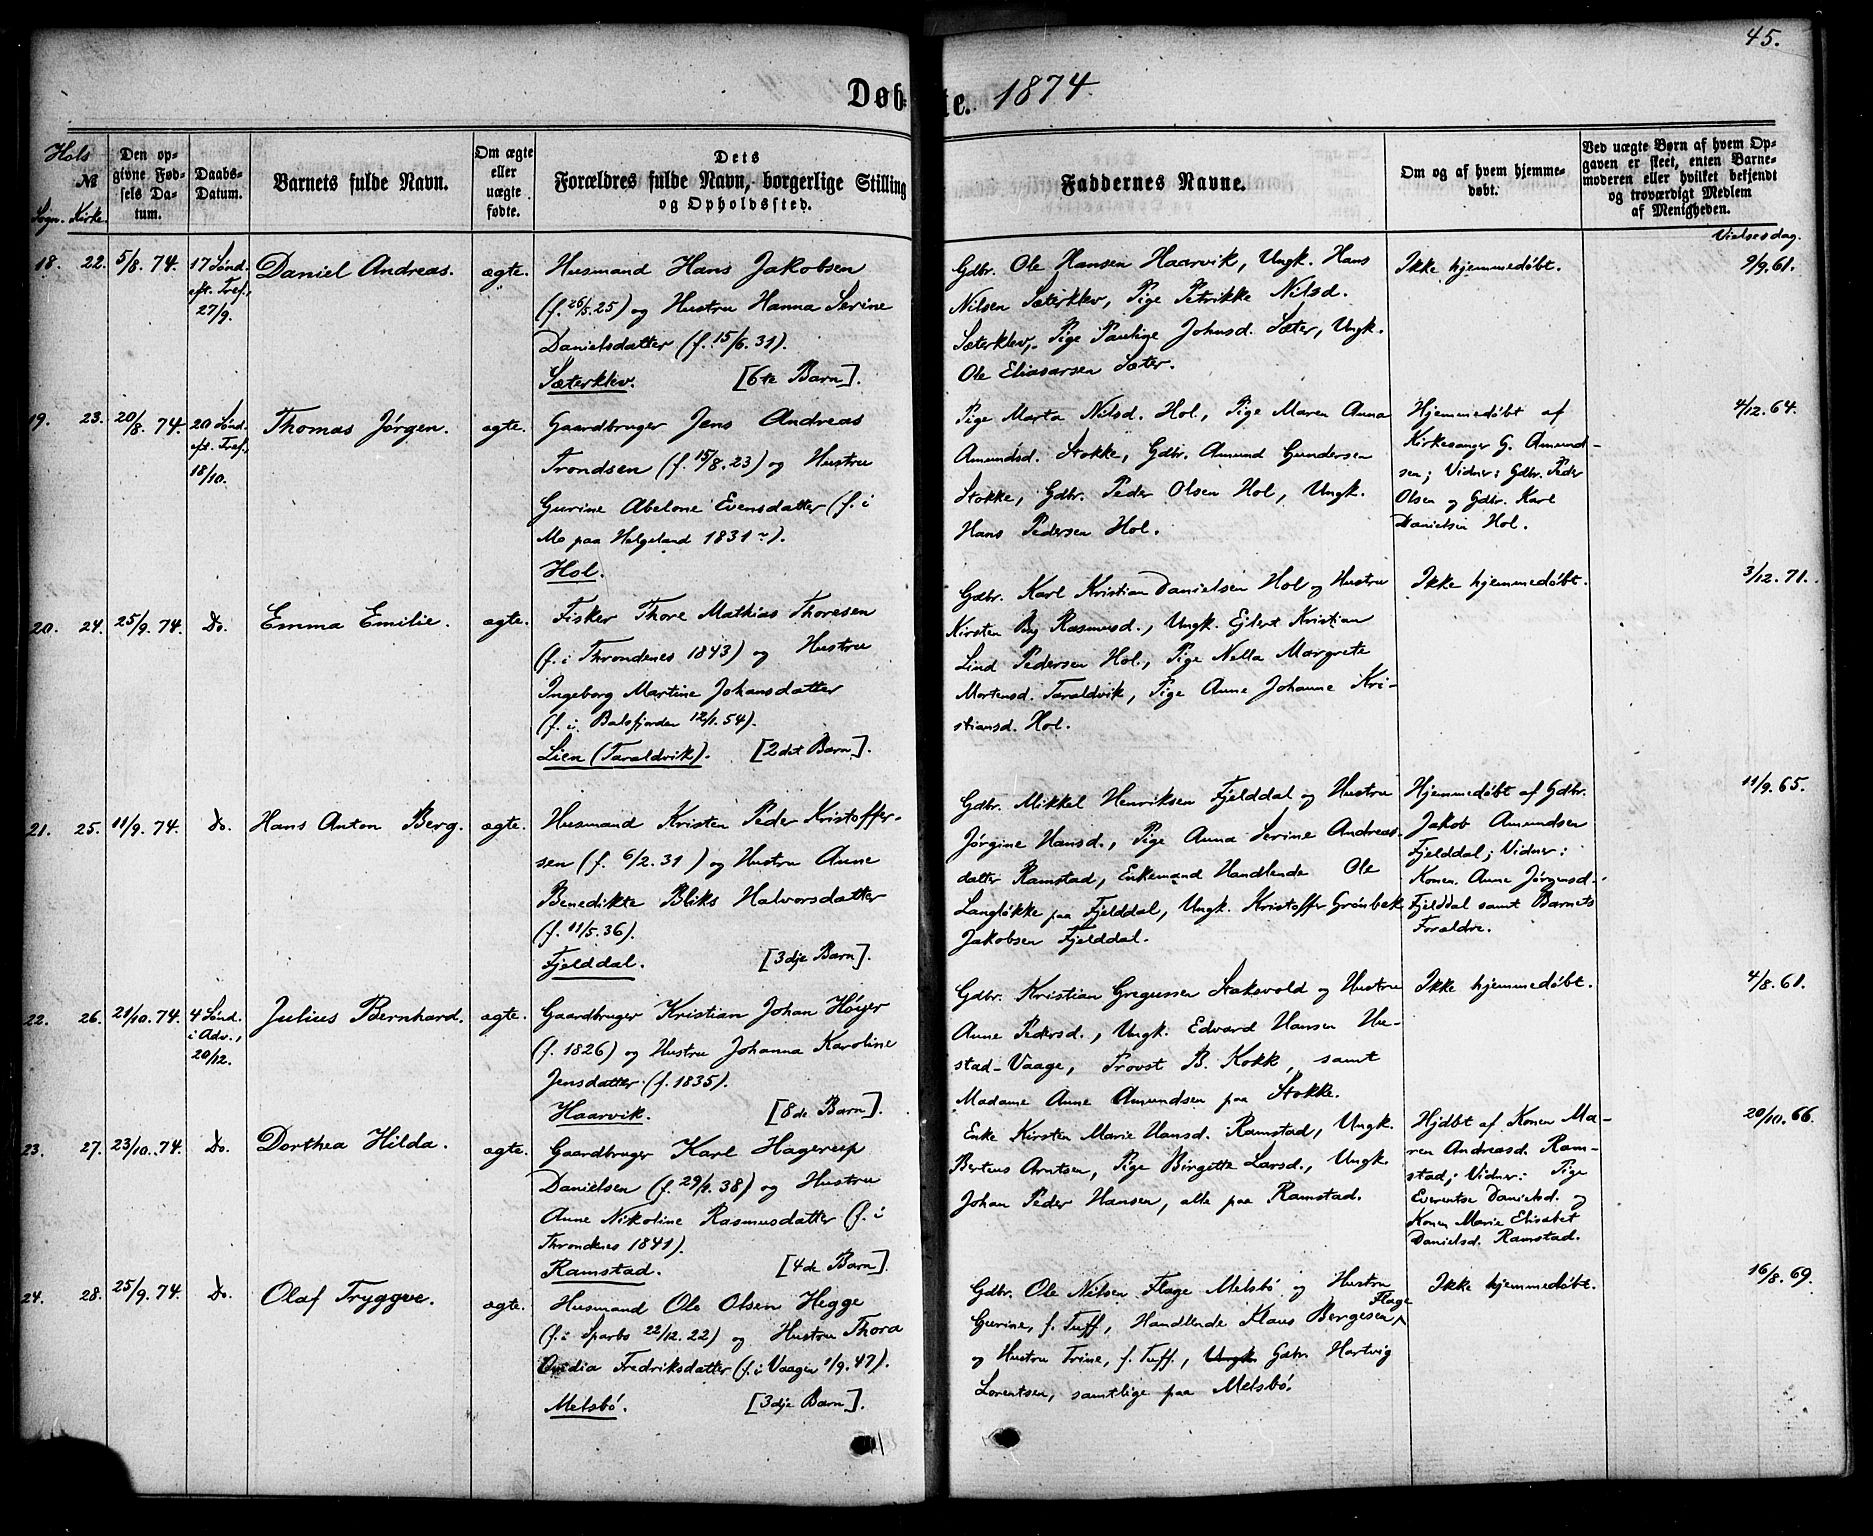 45.
Døbte. 1874.
Hols
№
Sogn. Kirke.
Den opgivne Fødsels Datum.
Daabs-Datum.
Barnets fulde Navn.
Om ægte eller uægte fødte.
Dets Forældres fulde Navn, borgerlige Stilling og Opholdssted.
Faddernes Navne.
Om og af hvem hjemmedøbt.
Ved uægte Børn af hvem Opgaven er skeet, enten Barnemoderen eller hvilket bekjendt og troværdigt Medlem af Menigheden.
Vielsesdag.
18. 22. 5/8. 74. 17 Sønd. eft. Tref., 27/9. Daniel Andreas. ægte.
Husmand Hans Jakobsen
(f. 26/5. 25) og Hustru Hanna Serine
Danielsdatter (f. 15/6. 31).
Sæterklev. [6te Barn].
Gdbr. Ole Hansen Haarvik, Ungk. Hans
Nilsen Sæterklev, Pige Petrikke Nilsd.
Sæterklev, Pige Pauline Johnsd. Sæter, Ungk.
Ole Eliasarsen Sæter.
Ikke hjemmedøbt.
9/9. 61.
19. 23. 20/8. 74. 20 Sønd. eft. Tref., 18/10. Thomas Jørgen. ægte.
Gaardbruger Jens Andreas
Trondsen (f. 15/8. 23) og Hustru
Gurine Abelone Evensdatter (f. i
Mo paa Helgeland 1831).
Hol.
Pige Marta Nilsd. Hol, Pige Maren Anna
Amundsd. Stokke, Gdbr. Amund Gundersen
Stokke, Gdbr. Peder Olsen Hol, Ungk.
Hans Pedersen Hol.
Hjemmedøbt af
Kirkesanger G. Amund-
sen; Vidner: Gdbr. Peder
Olsen og Gdbr. Karl
Danielsen Hol.
4/12. 64.
20. 24. 25/9. 74. Do. Emma Emilie. ægte.
Fisker Thore Mathias Thoresen
(f. i Throndenes 1843) og Hustru
Ingeborg Martine Johansdatter
(f. i Balsfjorden 12/1. 54).
Lien (Taraldvik). [2det Barn].
Gdbr. Karl Kristian Danielsen Hol og Hustru
Kirsten Rasmusd., Ungk. Ejlert Kristian
Lind Pedersen Hol, Pige Nella Margrete
Mortensd. Taraldvik, Pige Anne Johanne Kri-
stiansd. Hol.
Ikke hjemmedøbt.
3/12. 71.
21. 25. 11/9. 74. Do. Hans Anton Berg. ægte.
Husmand Kristen Peder Kristoffer-
sen (f. 6/2. 31) og Hustru Anne
Benedikte Bliks Halvorsdatter
(f. 11/5. 36).
Fjelddal. [3dje Barn].
Gdbr. Mikkel Henriksen Fjelddal og Hustru
Jørgine Hansd., Pige Anna Serine Andreas-
datter Ramstad, Enkemand Handlende Ole
Langløkke paa Fjelddal, Ungk. Kristoffer Grønbek
Jakobsen Fjelddal.
Hjemmedøbt af Gdbr.
Jakob Amundsen
Fjelddal; Vidner:
Konen Anne Jørgensd.
Fjelddal samt Barnets
Forældre.
11/9. 65.
22. 26. 21/10. 74. 4 Sønd. i Adv., 20/12. Julius Bernhard. ægte.
Gaardbruger Kristian Johan Høyer
(f. 1826) og Hustru Johanna Karoline
Jensdatter (f. 1835).
Haarvik. [8de Barn].
Gdbr. Kristian Gregussen Stakevold og Hustru
Anne Pedersd., Ungk. Edvard Hansen Hu-
stad-Vaage, Provst B. Kokk, samt
Madame Anne Amundsen paa Stokke.
Ikke hjemmedøbt.
4/8. 61.
23. 27. 23/10. 74. Do. Dorthea Hilda. ægte.
Gaardbruger Karl Hagerup
Danielsen (f. 29/9. 38) og Hustru
Anne Nikoline Rasmusdatter (f. i
Throndenes 1841).
Ramstad. [4de Barn].
Enke Kirsten Marie Hansd. Ramstad, Ungk.
Berteus Arntsen, Pige Birgitte Larsd., Ungk.
Johan Peder Hansen, alle paa Ramstad.
Hjdbt af Konen Ma-
ren Andreasd. Ram-
stad; Vidner: Pige
Everentse Danielsd. og
Konen Marie Elisabet
Danielsd. Ramstad.
20/10. 66.
24. 28. 25/9. 74. Do. Olaf Tryggve. ægte.
Husmand Ole Olsen Hegge
(f. i Sparbo 22/12. 22) og Hustru Thora
Ovidia Fredriksdatter (f. i Vaagen 1/9. 47).
Melsbø. [3dje Barn].
Gdbr. Ole Nilsen Flage Melsbø og Hustru
Gurine, f. Tuff, Handlende Klaus Bergesen Flage
og Hustru Trine, f. Tuff., Ungk. Gdbr. Hartvig
Lorentsen, samtlige paa Melsbø.
Ikke hjemmedøbt.
16/8. 69.